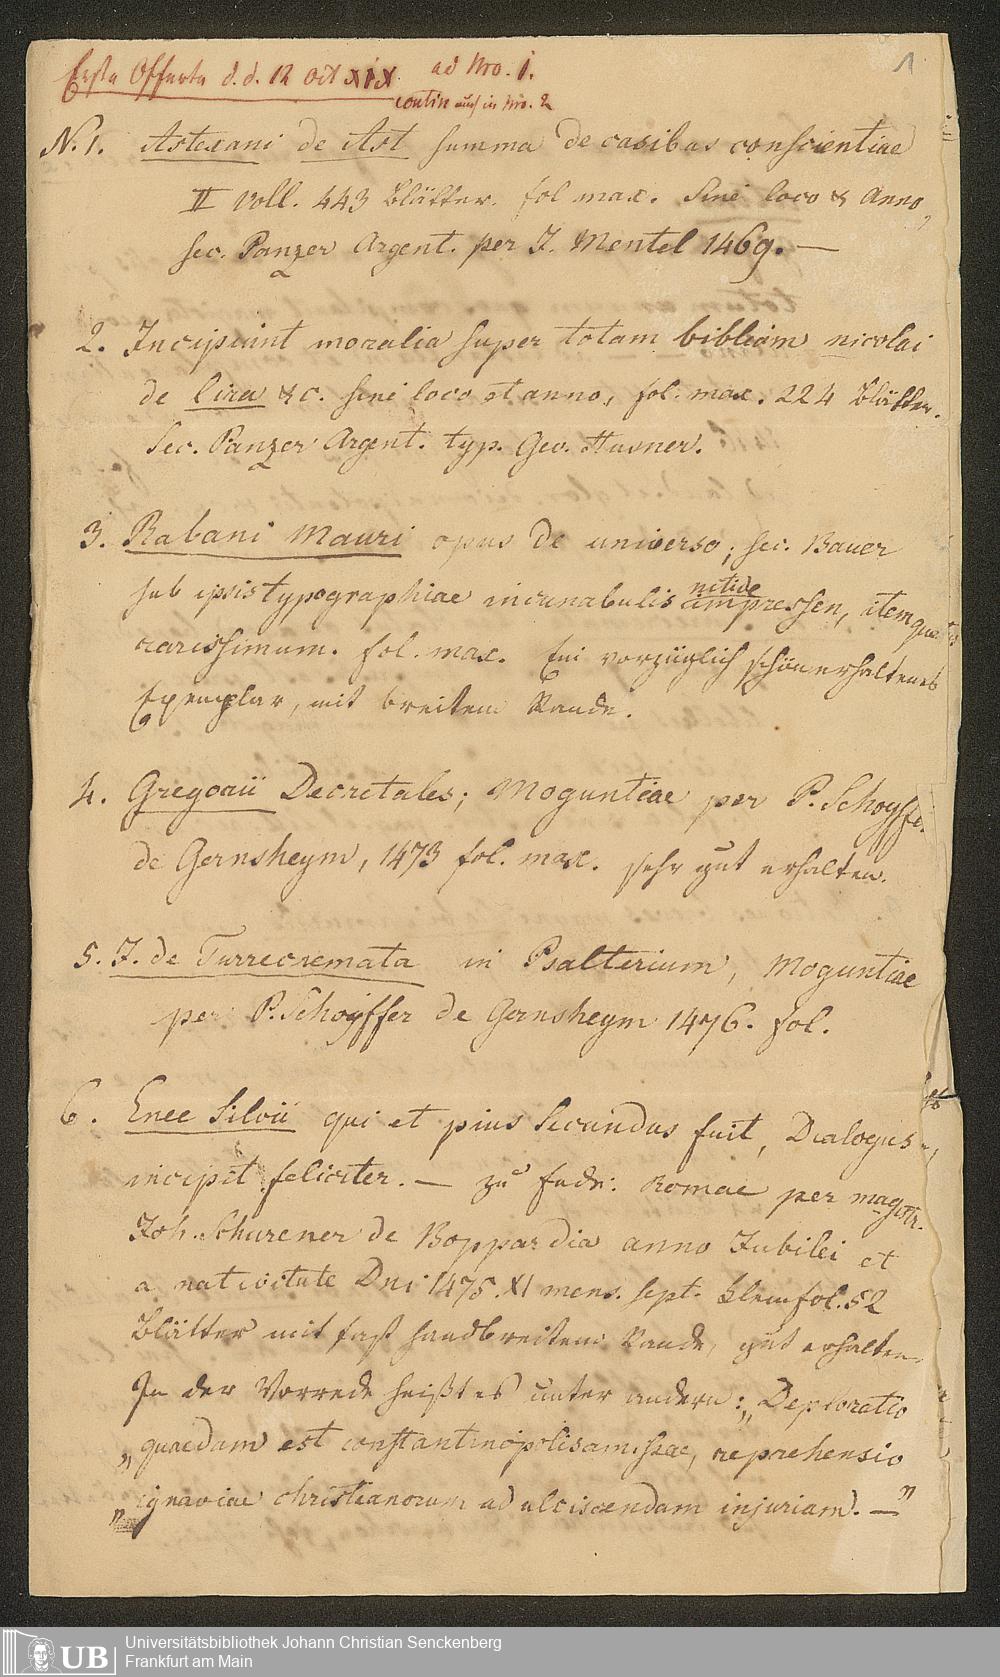 1
Erste Offerte d. d. 12 Oct XIX. ad Nro. 1.
contin auch in Nro. 2
N. 1. Astexani de Ast summa de casibus conscientiae
II voll. 443 Blätter. fol max. Sine loco & Anno,
sec. Panzer Argent. per J. Mentel 1469. —
2. Incipiunt moralia super totam bibliam nicolai
de lira &c. sine loco et anno, fol. max. 224 Blätter.
Sec. Panzer Argent. typ. Geo. Husner.
3. Rabani Mauri opus de universo; sec. Bauer
nitide
sub ipsis typographiae incunabulis impressen, itemque
rarissimum. fol. max. Ein vorzüglich schön erhaltenes
Exemplar, mit breitem Rande.
4. Gregorii Decretales; Moguntiae per P. Schoyffer
de Gernsheym, 1473 fol. max. sehr gut erhalten.
5. J. de Turrecremata in Psalterium, Moguntiae
per P. Schoyffer de Gernsheym 1476. fol.
6. Enee Silvii qui et pius Secundus fuit, Dialogus
incipit feliciter. — zu Ende: Romae per magistr.
Joh. Schurener de Boppardia anno Jubilei et
a nativitate Dni 1475. XI mens. sept. klein fol. 52
Blätter mit fast handbreitem Rande, gut erhalten.
In der Vorrede heißt es unter andern: „Deploratio
„quaedam est constantinopolis amissae, reprehensio
„ignaviae christianorum ad ulciscendam injuriam. —"
UB
Universitätsbibliothek Johann Christian Senckenberg
Frankfurt am Main